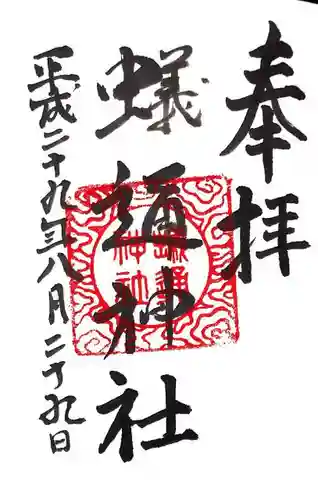 奉拝
蟻通神社
平成二十九年八月二十九日
蟻通神社